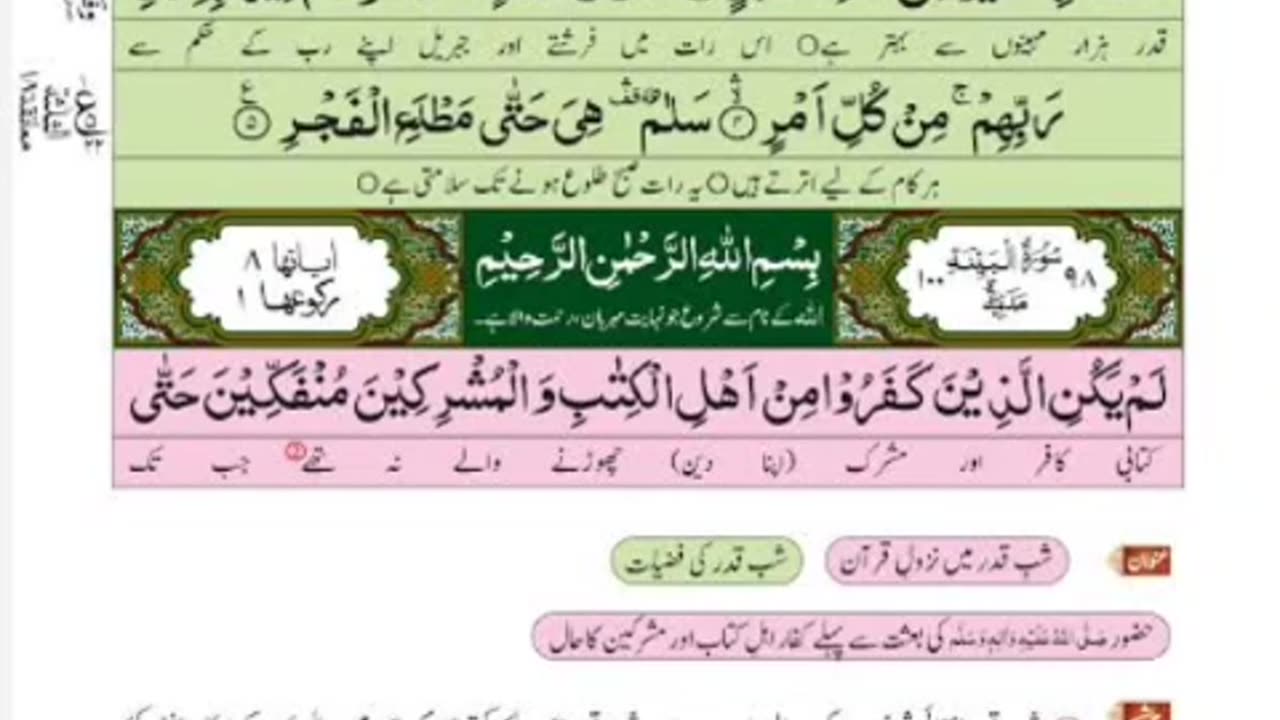 قدر ہزار مہینوں سے بہتر ہے○ اس رات میں فرشتے اور جبریل اپنے رب کے حکم سے
رَبِّهِمْ ۚ مِنْ كُلِّ اَمْرٍ ۛ۴ سَلٰمٌ ۛ۫ هِیَ حَتّٰى مَطْلَعِ الْفَجْرِ ۵
ہر کام کے لیے اترتے ہیں○ یہ رات صبح طلوع ہونے تک سلامتی ہے○
۹۸ سُوْرَةُ الْبَيِّنَةِ ۱۰۰
بِسْمِ اللّٰهِ الرَّحْمٰنِ الرَّحِیْمِ
اٰیاتها ۸
رکوعها ۱
اللہ کے نام سے شروع جو نہایت مہربان، رحمت والا ہے۔
لَمْ یَكُنِ الَّذِیْنَ كَفَرُوْا مِنْ اَهْلِ الْكِتٰبِ وَ الْمُشْرِكِیْنَ مُنْفَكِّیْنَ حَتّٰى
کتابی کافر اور مشرک (اپنا دین) چھوڑنے والے نہ تھے② جب تک
عنوان
شبِ قدر میں نزولِ قرآن
شبِ قدر کی فضیلت
حضور صَلَّی اللهُ عَلَیْهِ وَاٰلِهٖ وَسَلَّمَ کی بعثت سے پہلے کفار اہلِ کتاب اور مشرکین کا حال